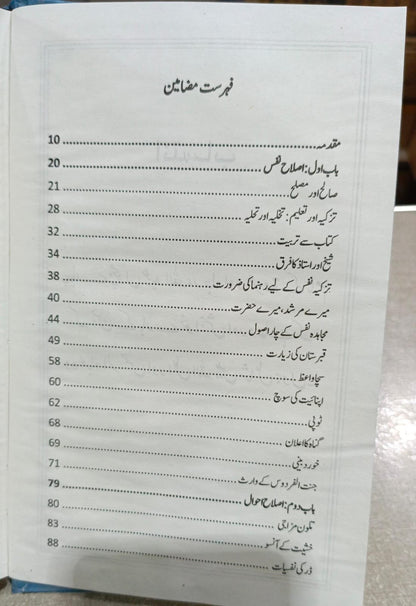 فہرست مضامین
مقدمہ 10
باب اول: اصلاح نفس 20
صالح اور مصلح 21
تزکیہ اور تعلیم: تخلیہ اور تحلیہ 28
کتاب سے تربیت 32
شیخ اور استاذ کا فرق 34
تزکیہ نفس کے لیے رہنما کی ضرورت 38
میرے مرشد، میرے حضرت 40
مجاہدہ نفس کے چار اصول 44
قبرستان کی زیارت 49
سچا واعظ 58
اپنائیت کی سوچ 60
ٹوپی 62
گناہ کا اعلان 68
خورد بینی 69
جنت الفردوس کے وارث 71
باب دوم: اصلاح احوال 79
تلون مزاجی 80
خشیت کے آنسو 83
ڈر کی نفسیات 88